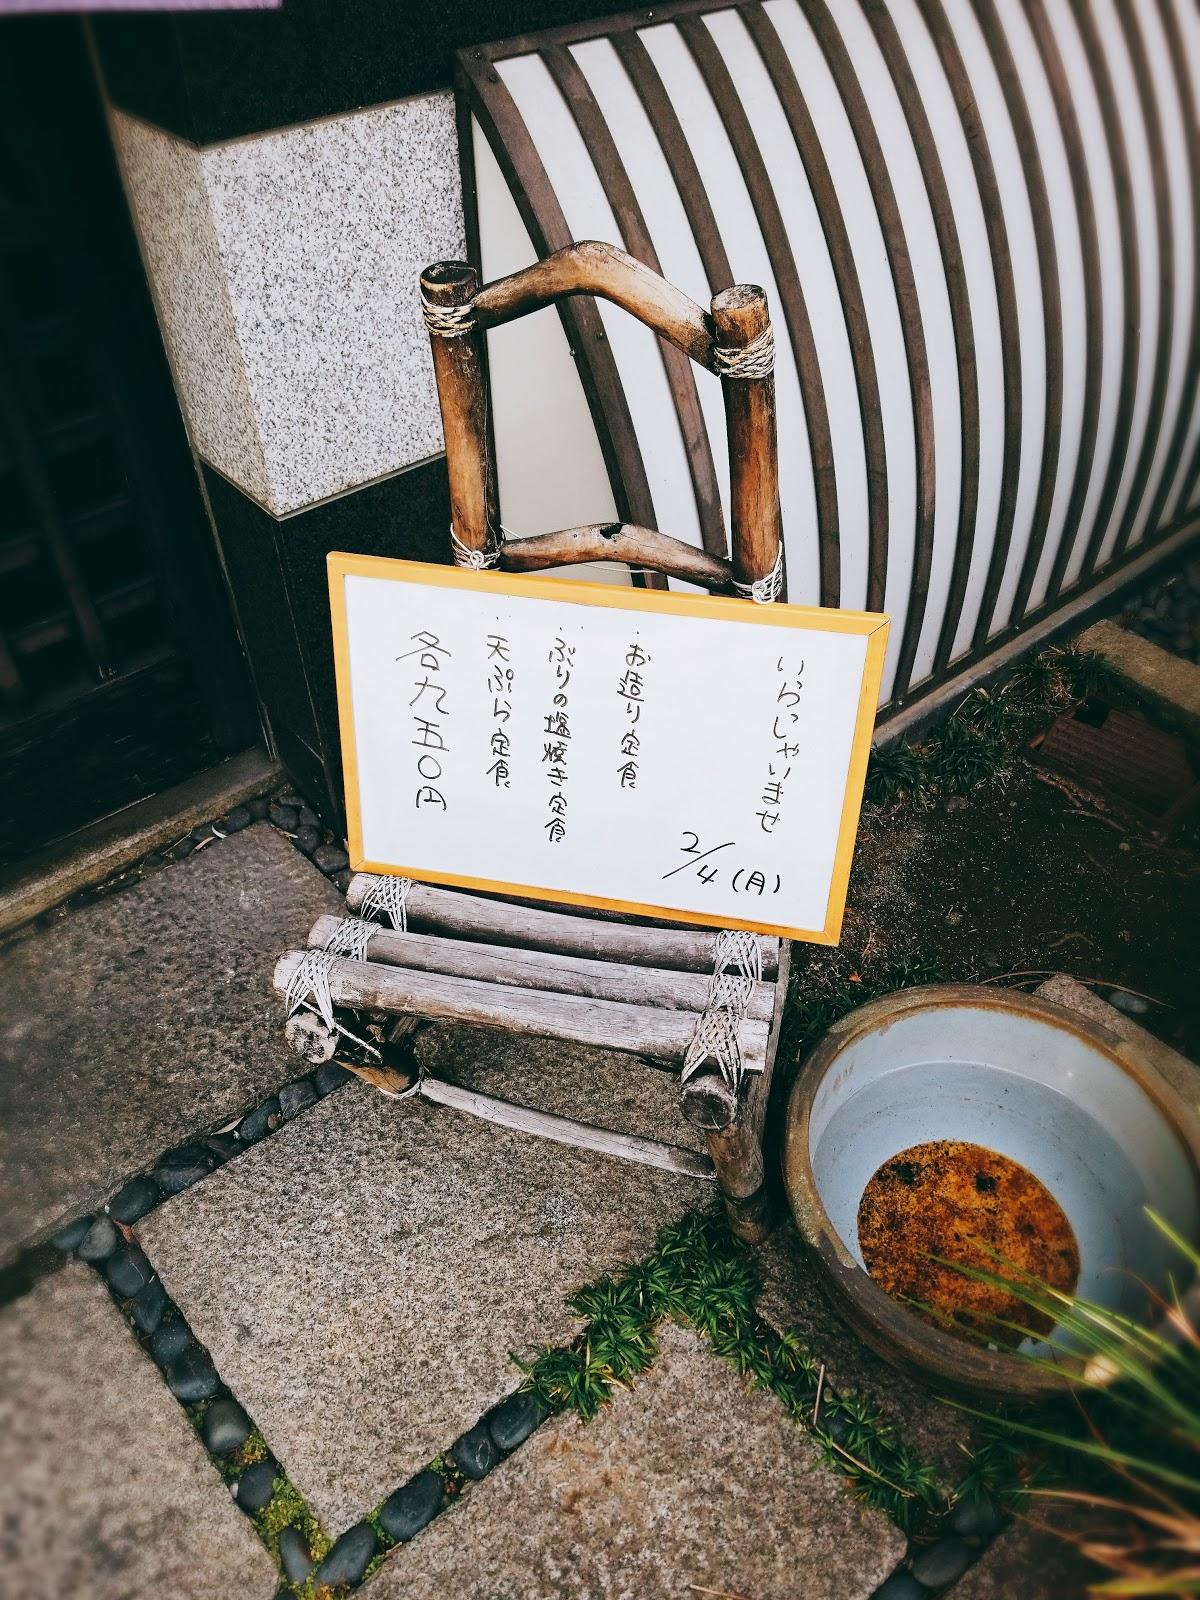 いらっしゃいませ
2/4(月)
・お造り定食
・ぶりの塩焼き定食
・天ぷら定食
各九五〇円